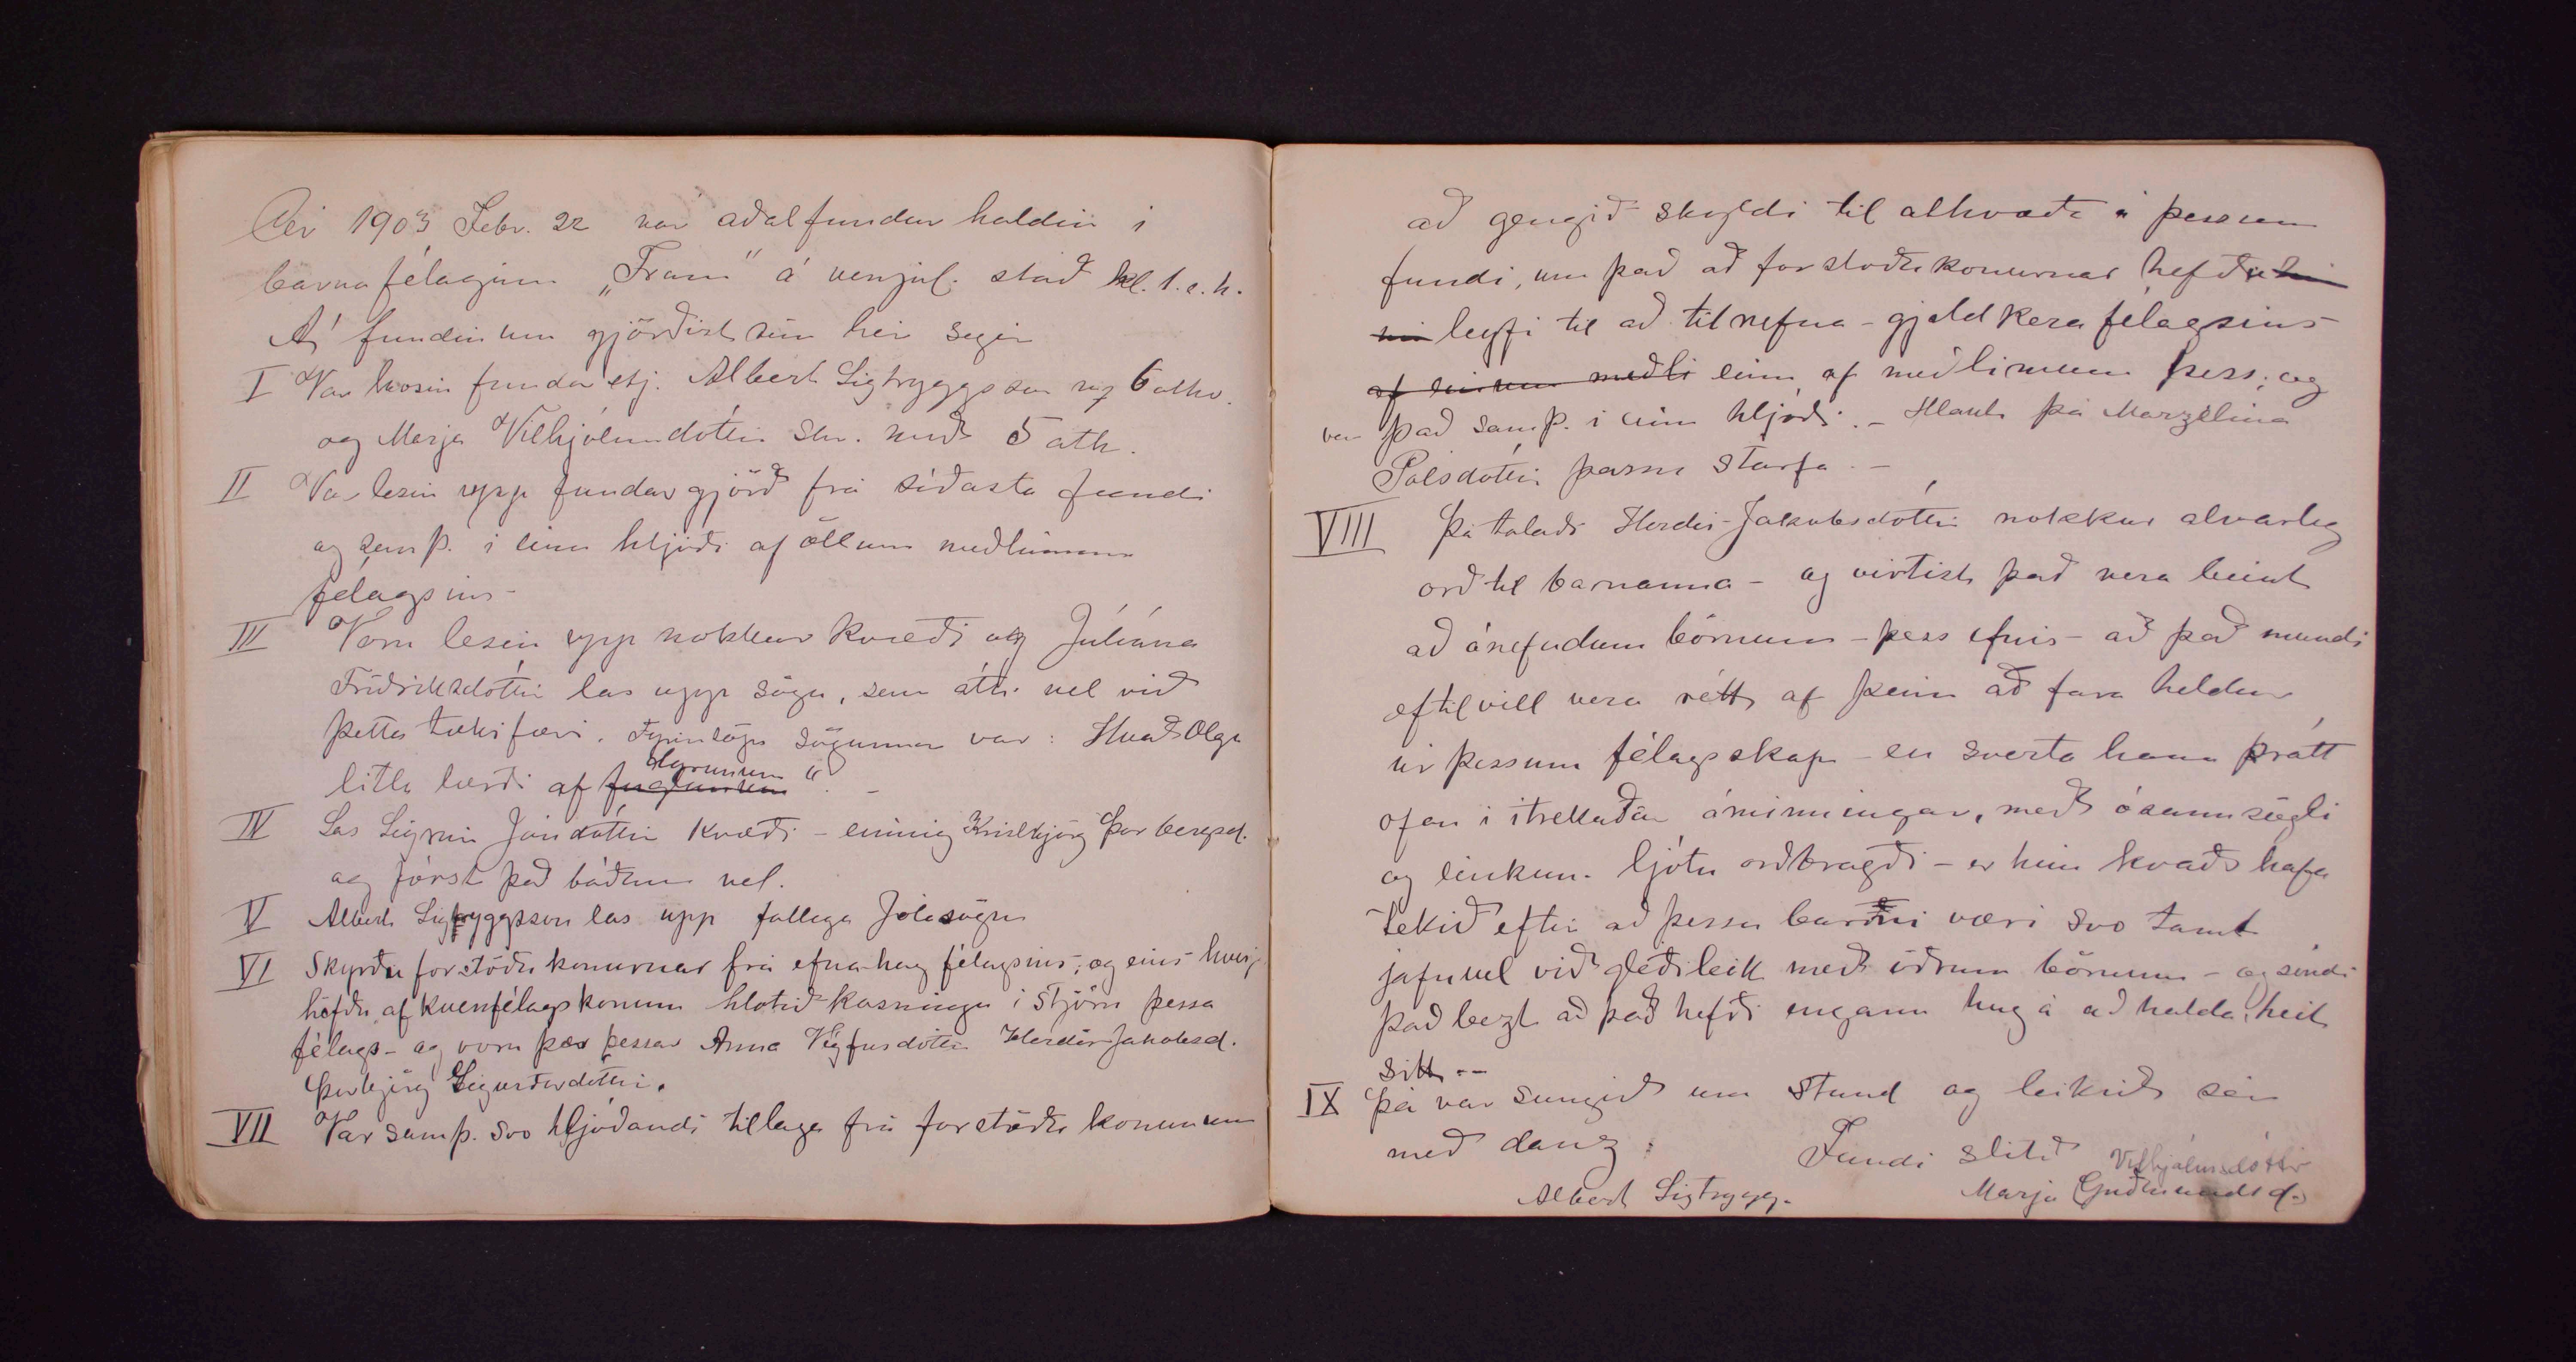 Ár 1903 Febr. 22 var aðalfundur haldin í
barnafélaginu „Fram" á venjul. stað kl. 1. e. h.
Á fundinum gjörðist sem hér segir
I Var kosin fundarstj. Albert Sigtryggsson með 6 atkv.
og Marja Vilhjálmsdóttir skr. með 5 atk.
II Var lesin upp fundargjörð frá síðasta fundi
og samþ. í einu hljóði af öllum meðlimum
félagsins-
III Voru lesin upp nokkur kvæði og Júlíána
Friðriksdóttir las upp sögu, sem átti vel við
þetta tækifæri. Fyrirsögn sögunnar var: Hvað Olga
litla lærði af fuglunum blómunum". -
IV Las Sigrún Jónsdóttir kvæði - einnig Kristbjörg Þorbergsd.
og fórst það báðum vel.
V Albert Sigtryggsson las upp fallega Jólasögu
VI Skyrðu forstöðukonurnar frá efnahag félagsins; og eins hverj
höfðu af kvenfélagskonum hlotið kosningu i stjórn þessa
félags- og voru þær þessar Anna Vigfúsdóttir Herdís Jakobsd.
Þorbjörg Sigurðardóttir.
VII Var samþ. svo hljóðandi tillaga frá forstöðukonunum
að gengið skyldi til atkvæða á þessum
fundi, um það að forstöðukonurnar hefðu
leyfi til að tilnefna - gjaldkera félagsins-
af einum meðli einn af meðlimum þess; og
var það samþ. i einu hljóði. - Hlaut þá Marzilína
Pálsdóttir þann starfa. -
VIII Þá talaði Herdís Jakobsdóttir nokkur alvarleg
orð til barnanna - og virtist það vera beint
að ónefndum börnum - þess efnis - að það mundi
eftilvill vera rétt af þeim að fara heldur
úr þessum félagsskap - en sverta hann þrátt
ofan i ítrekaðar áminningar, með ósannsögli
og einkum. ljótu orðbragði - er hún kvað hafa
tekið eftir að þessu barni væri svo tamt
jafnvel við gleðileik með öðrum börnum - og sindi
það bezt að það hefði engann hug á að halda heit
sitt --
IX Þá var sungið um stund og leikið sér
með danz:
Fundi slitið
Albert Sigtrygg.
Vilhjálmsdóttir
Marja Guðmundsd.